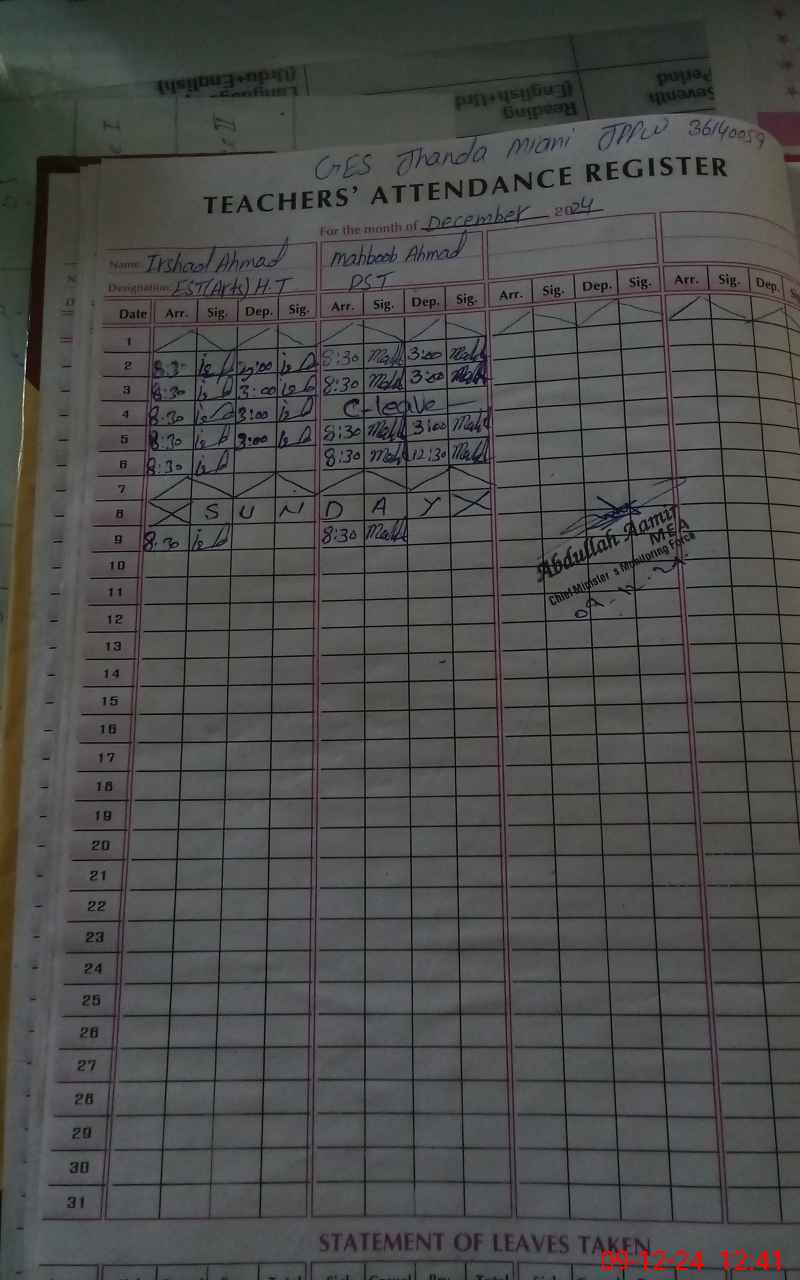 Language
(Urdu+English)
Reading
(English+Urd
Seventh
Period
GES Jhanda Miani JPPLW 36140059
TEACHERS' ATTENDANCE REGISTER
For the month of December 2024
Name: Irshad Ahmad Mahboob Ahmad
Designation: EST(Arts) H.T PST
Date Arr. Sig. Dep. Sig. Arr. Sig. Dep. Sig. Arr. Sig. Dep. Sig. Arr. Sig. Dep.
1
2 8:30 3:00 8:30 3:00
3 8:30 3:00 8:30 3:00
4 8:30 3:00 C-leave
5 8:30 3:00 8:30 3:00
6 8:30 8:30 12:30
7
8 S U N D A Y
9 8:30 8:30
10
11
12
13
14
15
16
17
18
19
20
21
22
23
24
25
26
27
28
29
30
31
Abdullah Aamir
MEA
Chief Minister's Monitoring Force
09-12-24
STATEMENT OF LEAVES TAKEN
09-12-24 12:41